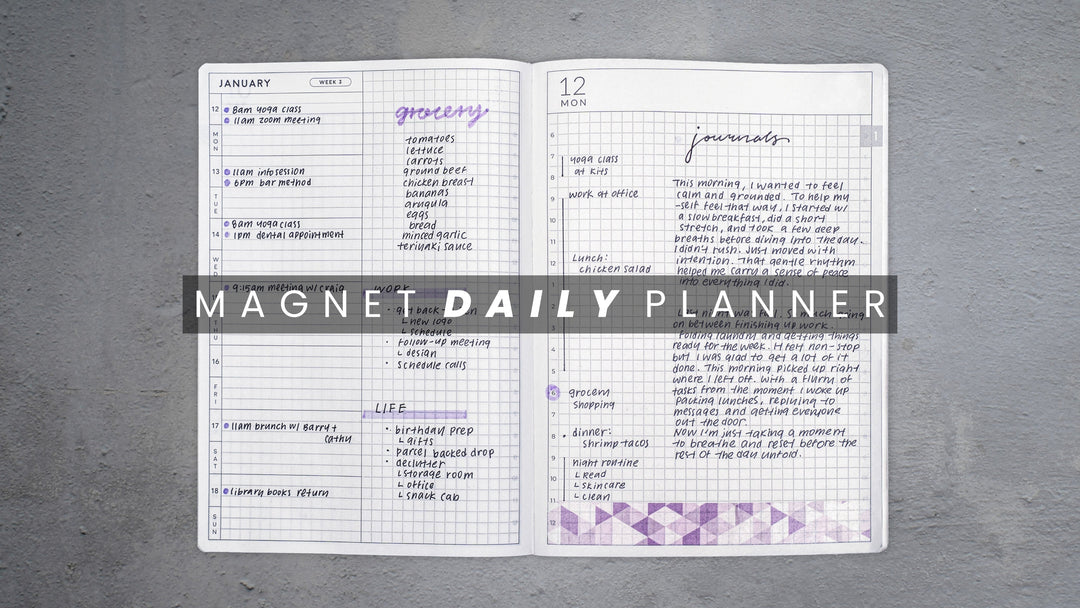 JANUARY
WEEK 3
12
MON
8am yoga class
11am zoom meeting
13
TUE
11am info session
6pm bar method
14
WED
8am yoga class
1pm dental appointment
9:15am meeting w/ craig
THU
16
FRI
17
SAT
11am brunch w/ Barry +
cathy
18
SUN
library books return
grocery
tomatoes
lettuce
carrots
ground beef
chicken breast
bananas
arugula
eggs
bread
minced garlic
teriyaki sauce
WORK
get back
new logo
schedule
follow-up meeting
design
schedule calls
LIFE
birthday prep
gifts
parcel backed drop
declutter
storage room
office
snack cab
MAGNET DAILY PLANNER
12
MON
1
6
7
8
9
11
12
1
4
5
6
7
8
9
10
11
12
yoga class
at Kits
work at office
Lunch:
chicken salad
grocery
shopping
dinner:
shrimp tacos
night routine
Read
skincare
clean
journals
This morning, I wanted to feel
calm and grounded. To help my
-self feel that way, I started w/
a slow breakfast, did a short
stretch, and took a few deep
breaths before diving into the day.
I didn't rush. Just moved with
intention. That gentle rhythm
helped me carry a sense of peace
into everything I did.
Last night was full. So much going
on between finishing up work.
Folding laundry and getting things
ready for the week. It felt non-stop
but I was glad to get a lot of it
done. This morning picked up right
where I left off. With a flurry of
tasks from the moment I woke up
packing lunches, replying to
messages and getting everyone
out the door.
Now I'm just taking a moment
to breathe and reset before the
rest of the day unfold.